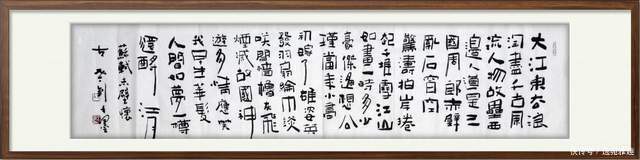 大江東去浪
淘盡千古風
流人物故壘西
邊人道是三
國周郎赤壁
亂石穿空
驚濤拍岸捲
起千堆雪江山
如畫一時多少
豪傑遙想公
瑾當年小喬
初嫁了雄姿英
發羽扇綸巾談
笑間檣櫓灰飛
煙滅故國神
遊多情應笑
我早生華髮
人間如夢一樽
還酹江月
蘇軾赤壁懷
古
快传号